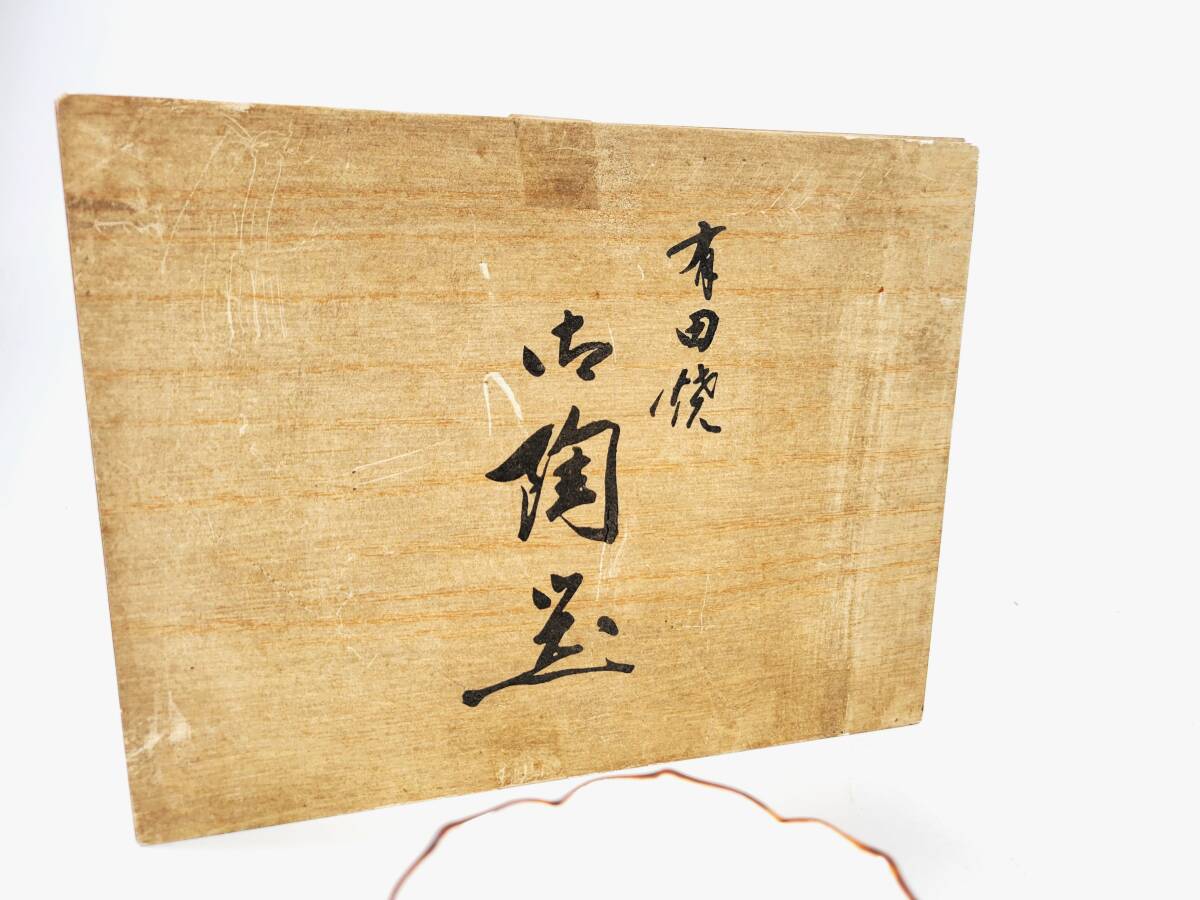 有田焼
御陶器